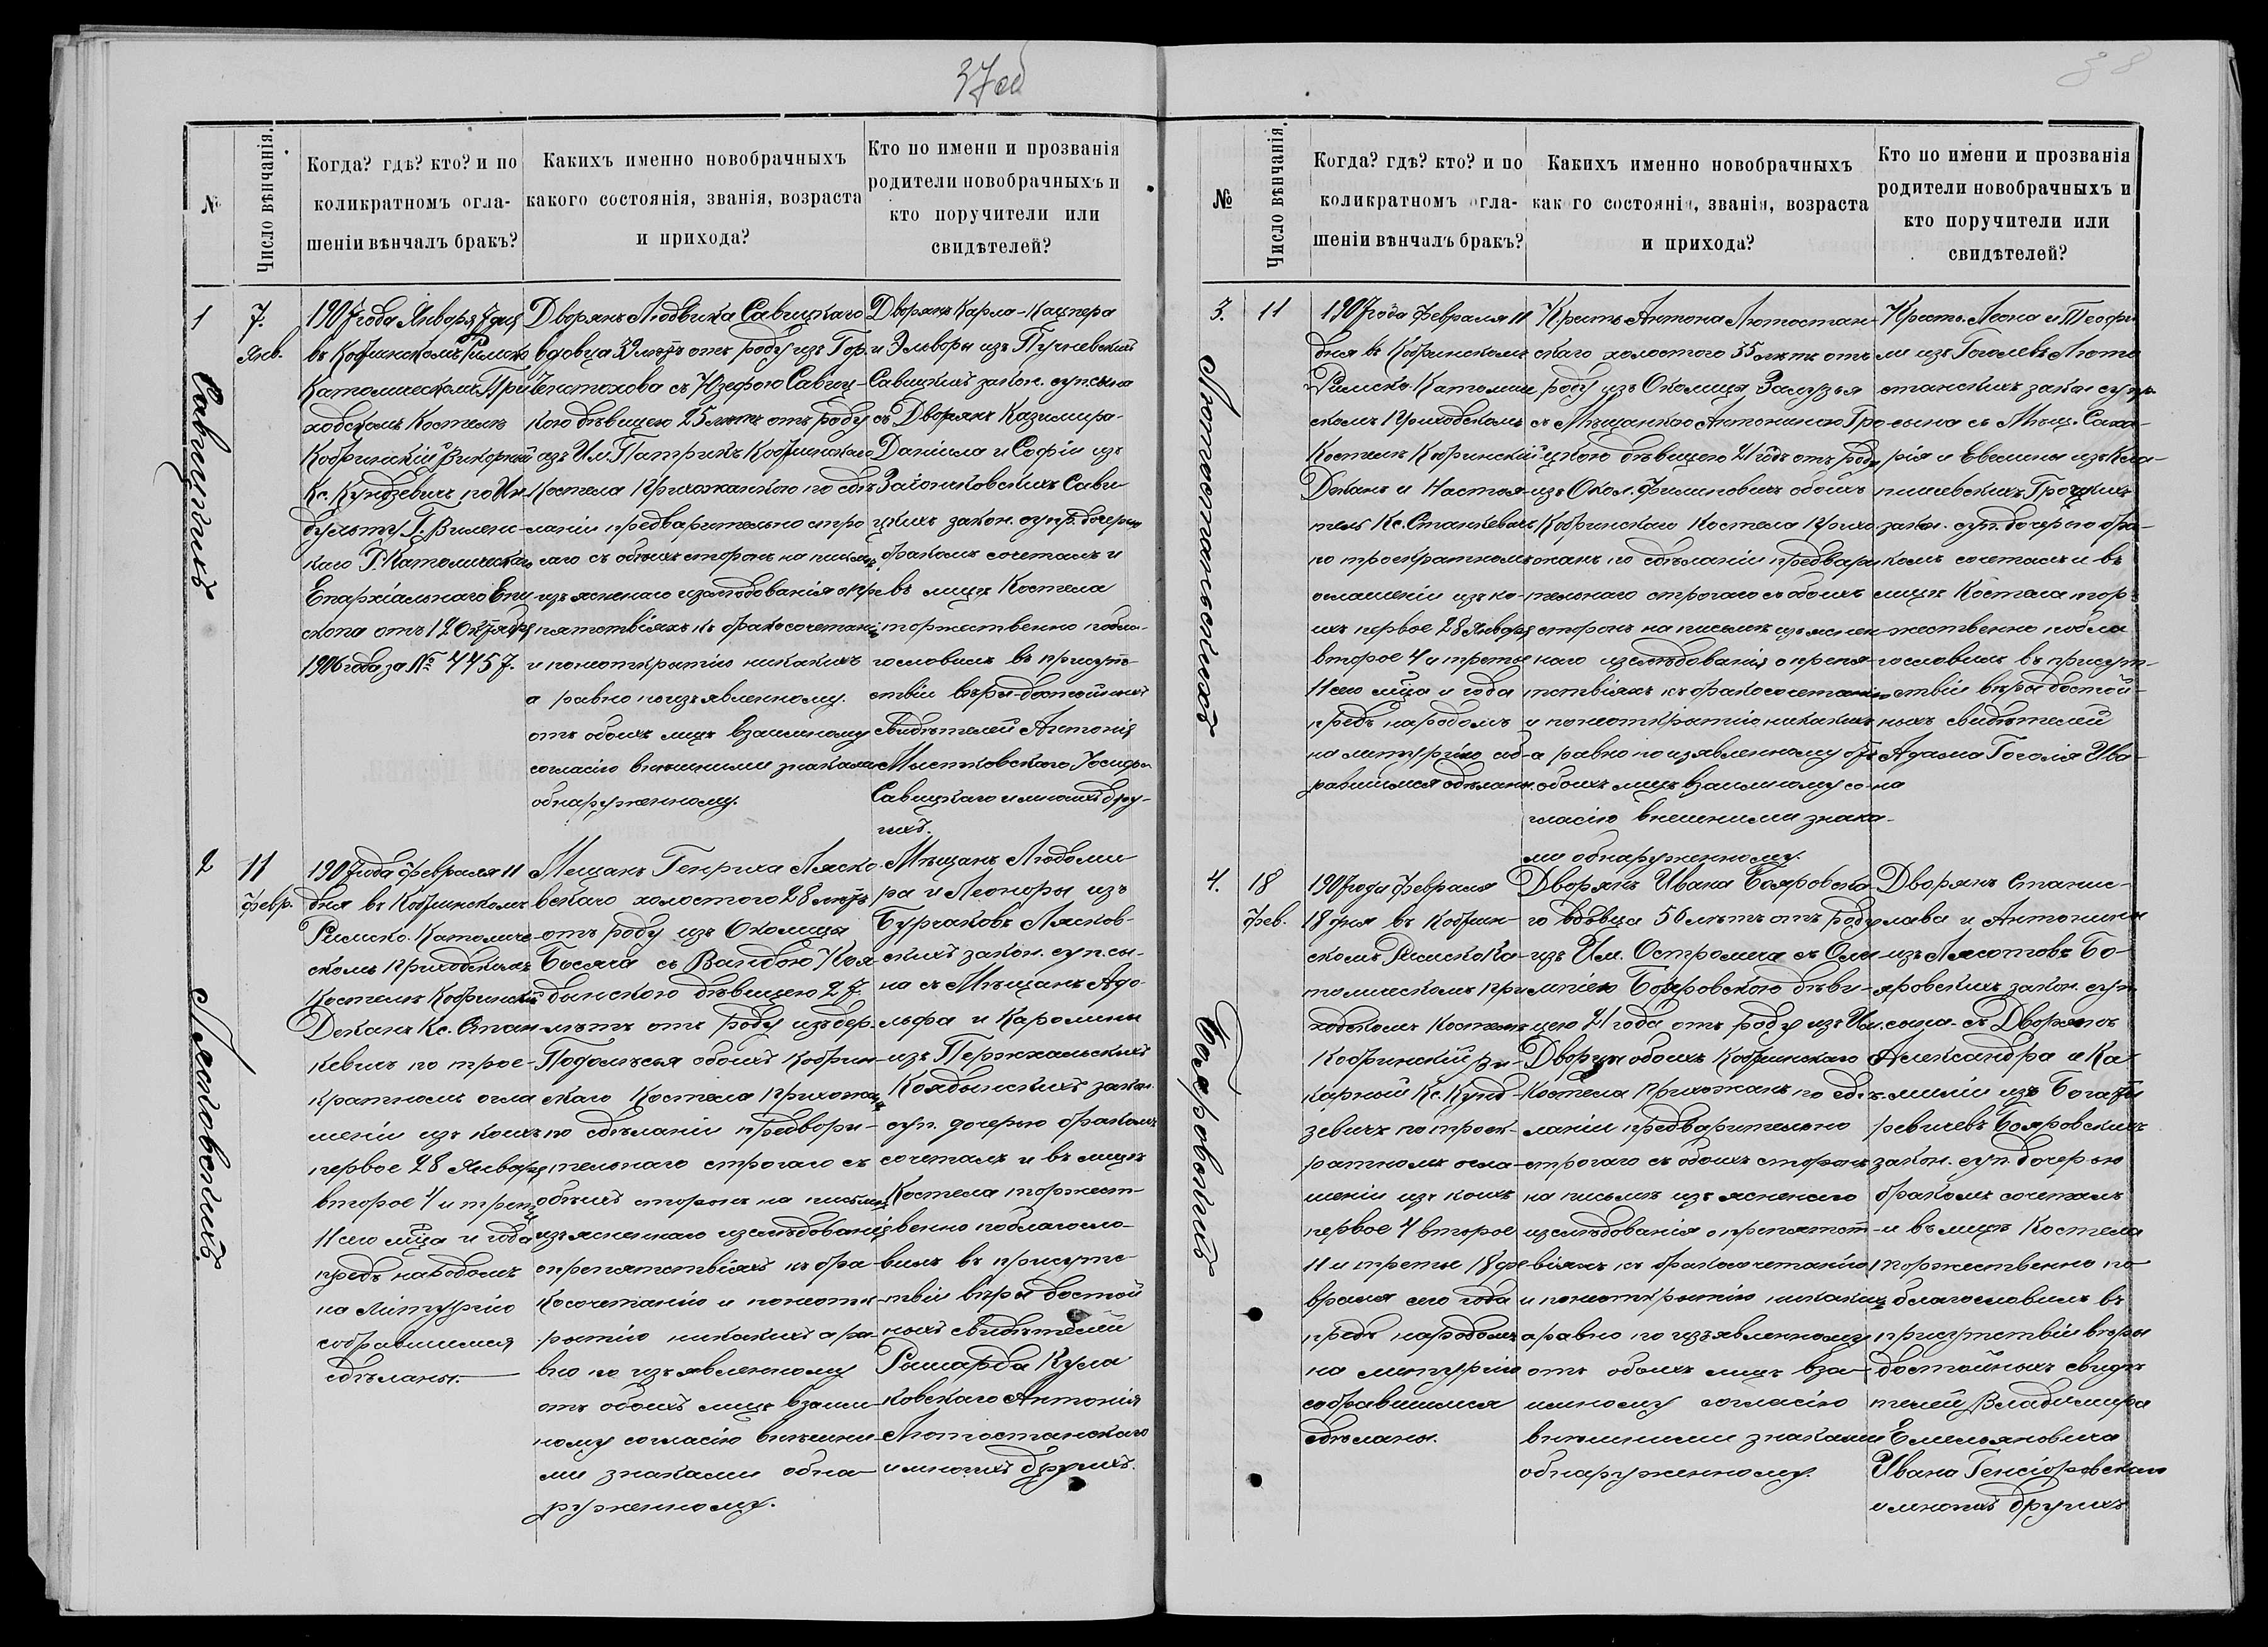 37 об
38
№
Число вѣнчанія.
Когда? гдѣ? кто? и по
коликратномъ огла-
шеніи вѣнчалъ бракъ?
Какихъ именно новобрачныхъ
какого состоянія, званія, возраста
и прихода?
Кто по имени и прозванія
родители новобрачныхъ и
кто поручители или
свидѣтелей?
1
Савицкихъ
7.
Янв.
1907 года Января 7 дня
въ Кобринскомъ Римско
Католическомъ При
ходскомъ Костелѣ
Кобринскій Викарный
Кс. Кундзевичъ по Ин
дульту Г. Виленс-
каго Р. Католическаго
Епархіальнаго Епи
скопа отъ 12 Октября
1906 года за № 4457.
Дворянъ Людвика Савицкаго
вдовца 39 лѣтъ отъ роду изъ Гор.
Ченстохова съ Юзефою Савиц-
кою дѣвицею 25 лѣтъ отъ роду
изъ Им. Патрикъ Кобринскаго
Костела Прихожанкою по сдѣ
ланіи предварительно стро
гаго съ обоихъ сторонъ на письмѣ
изъясненаго изслѣдованія о пре
пятствіяхъ къ бракосочетанію
и понеоткрытію никакихъ
а равно по изъявленному
отъ обоихъ лицъ взаимному
согласію внѣшними знаками
обнаруженному.
Дворянъ Карла-Кацпера
и Эльворы изъ Пучневскихъ
Савицкихъ закон. суп. сына
съ Дворянъ Казимира-
Даніила и Софіи изъ
Заіончковскихъ Сави
цкихъ закон. супр. дочерью
бракомъ сочеталъ и
въ лицѣ Костела
торжественно побла-
гословилъ въ присут-
ствіи вѣры-достойныхъ
Свидѣтелей Антонія
Савицкаго и многихъ дру-
гихъ.
2
Лясковскихъ
11
февр.
1907 года февраля 11
дня въ Кобринскомъ
Римско-Католиче-
скомъ Приходскомъ
Костелѣ Кобринскій
Деканъ Кс. Стан
кевичъ по трое-
кратномъ огла
шеніи изъ коихъ
первое 28 Января
второе 4 и третье
11 сего м-ца и года
предъ народомъ
на Литургію
собравшимся
сдѣланы.
Мещанъ Генриха Ляско
вскаго холостого 28 лѣтъ
отъ роду изъ Околицы
Босяча съ Вандою Коя
дынскою дѣвицею 27
лѣтъ отъ роду изъ дер.
Подолѣсья обоихъ Кобрин-
скаго Костела Прихожанъ
по сдѣланіи предвари-
тельнаго строгаго съ
обоихъ сторонъ на письмѣ
изъясненаго изслѣдованія
о препятствіяхъ къ бра
косочетанію и понеотк-
рытію никакихъ а ра-
вно по изъявленному
отъ обоихъ лицъ взаим-
ному согласію внѣшни-
ми знаками обна-
руженному.
Мѣщанъ Любоми
ра и Леоноры изъ
Бурчаковъ Лясков-
скихъ закон. суп. сы-
на съ Мѣщанъ Адо-
льфа и Каролины
Коядынскихъ закон.
суп. дочерью бракомъ
сочеталъ и въ лицѣ
Костела торжест-
венно поблагосло-
вилъ въ присутс-
твіи вѣры достой
ныхъ свидѣтелей
Ришарда Кула
ковскаго Антонія
Лютостанскаго
и многихъ другихъ.
№
Число вѣнчанія.
Когда? гдѣ? кто? и по
коликратномъ огла-
шеніи вѣнчалъ бракъ?
Какихъ именно новобрачныхъ
какого состоянія, званія, возраста
и прихода?
Кто по имени и прозванія
родители новобрачныхъ и
кто поручители или
свидѣтелей?
3.
Лютостаньскихъ
11
1907 года февраля 11
дня въ Кобринскомъ
Римско-Католиче
скомъ Приходскомъ
Костелѣ Кобринскій
Деканъ и Настоя-
тель Кс. Станкевичъ
по троекратномъ
оглашеніи изъ ко-
ихъ первое 28 Января
второе 4 и третье
11 сего м-ца и года
предъ народомъ
на литургію соб-
равшимся сдѣланы.
Крест. Антона Лютостан-
скаго холостого 35 лѣтъ отъ
роду изъ Околицы Залузья
съ Мѣщанкою Антониною Гро
цкою дѣвицею 21 годъ отъ роду
изъ Окол. Филиповичъ обоихъ
Кобринскаго Костела Прихо
жанъ по сдѣланіи предвари
тельнаго строгаго съ обоихъ
сторонъ на письмѣ изъяснен-
наго изслѣдованія о препя-
тствіяхъ къ бракосочетанію
и понеоткрытію никакихъ
а равно по изявленному отъ
обоихъ лицъ взаимному со-
гласію внешними знака-
ми обнаруженному.
Крест. Леона и Теофи
ли изъ Гоголевъ Люто
станскихъ закон супр.
сына съ Мѣщ. Заха-
рія и Евелины изъ
закон. суп. дочерью бра-
комъ сочеталъ и въ
лицѣ Костела тор-
жественно побла
гословилъ въ присут-
ствіи вѣры достой-
ныхъ свидѣтелей
Адама Гоголя Ива-
на
4.
Бояровскихъ
18
фев.
1907 года февраля
18 дня въ Кобрин-
скомъ Римско Ка-
толическомъ При
ходскомъ Костелѣ
Кобринскій Ви-
карный Кс. Кунд-
зевичъ по троек-
ратномъ огла-
шеніи изъ коихъ
первое 4 второе
11 и третье 18 фе
враля сего года
предъ народомъ
на литургію
собравшимся
сдѣланы.
Дворянъ Ивана Бояровска-
го вдовца 50 лѣтъ отъ роду
изъ Им. Остромеча съ Оли
мпіею Бояровскою дѣви-
цею 21 года отъ роду изъ Им.
обоихъ Кобринскаго
Костела Прихожанъ по сдѣ
ланіи предварительно
строгаго съ обоихъ сторонъ
на письмѣ изъясненаго
изслѣдованія о препятст-
віяхъ къ бракосочетанію
и понеоткрытію никакихъ
а равно по изъявленному
отъ обоихъ лицъ вза-
имному согласію
внѣшними знаками
обнаруженному.
Дворянъ Станис-
лава и Антонины
изъ Лясотовъ Бо-
яровскихъ закон. суп.
сына съ Дворянъ
Александра и Ка
миліи изъ Богаты
ревичевъ Бояровскихъ
закон. суп. дочерью
бракомъ сочеталъ
и въ лицѣ Костела
торжественно по
благословилъ въ
присутствіи вѣры
достойныхъ свидѣ
телей Владимира
Емельяновича
Ивана Генсіоровскаго
и многихъ другихъ